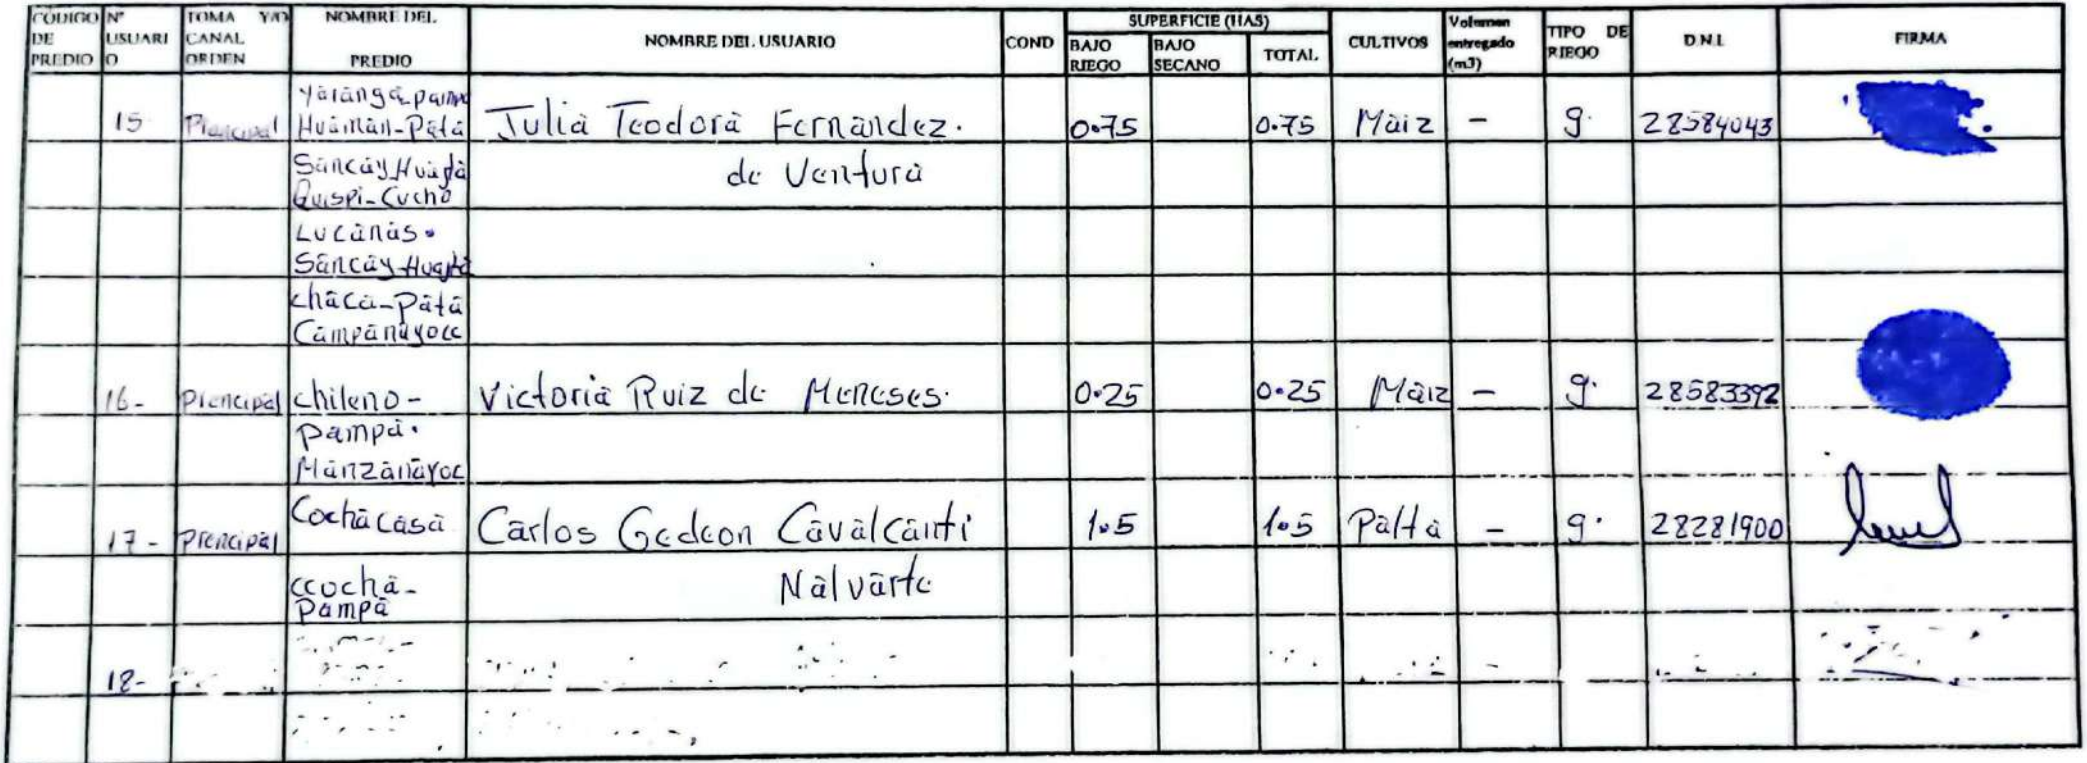 CODIGO DE PREDIO N° USUARIO TOMA Y/O CANAL ORDEN NOMBRE DEL PREDIO NOMBRE DEL USUARIO COND SUPERFICIE (HAS) BAJO RIEGO BAJO SECANO TOTAL CULTIVOS Volumen entregado (m3) TIPO DE RIEGO D.N.I. FIRMA
Yaranga-pampa
15 Principal Huaman-Pata Julia Teodora Fernandez. 0.75 0.75 Maiz - g. 28584043
Sancay Huayta de Ventura
Quispi-Cucho
Lucanas.
Sancay Huayta
chaca-Pata
Campanayocc
16- Prencipal chileno- Victoria Ruiz de Meneses. 0.25 0.25 Maiz - g. 28583392
Pampa.
Manzanayoc
17- Prencipal Cochacasa Carlos Gedeon Cavalcanti 1.5 1.5 Palta - g. 28281900
ccocha- Nalvarte
Pampa
18-